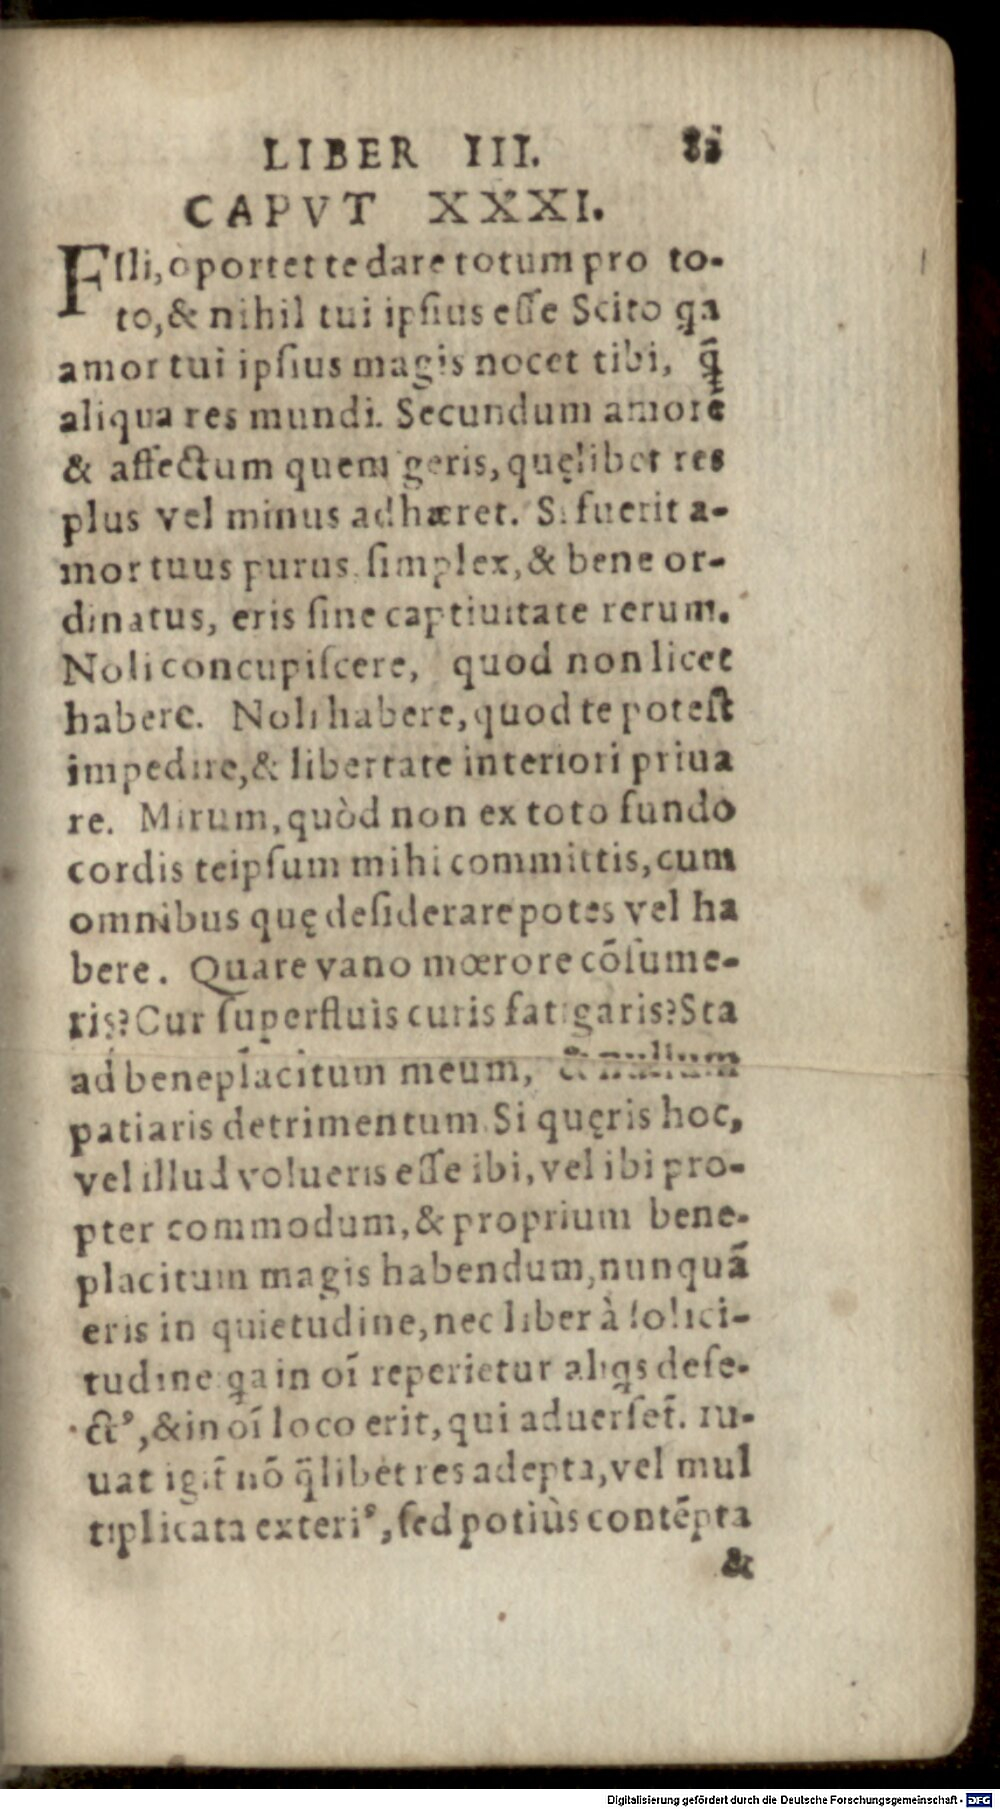 LIBER III. 81
CAPVT XXXI.
FIli, oportet te dare totum pro to-
to, & nihil tui ipſius eſſe Scito qa
amor tui ipſius magis nocet tibi, q̃
aliqua res mundi. Secundum amorē
& affectum quem geris, quęlibet res
plus vel minus adhæret. Si fuerit a-
mor tuus purus, ſimplex, & bene or-
dinatus, eris ſine captiuitate rerum.
Noli concupiſcere, quod non licet
habere. Noli habere, quod te poteſt
impedire, & libertate interiori priua
re. Mirum, quòd non ex toto fundo
cordis teipſum mihi committis, cum
omnibus quę deſiderare potes vel ha
bere. Quare vano mœrore cōſume-
ris? Cur ſuperfluis curis fatigaris? Sta
ad beneplacitum meum, & nullum
patiaris detrimentum. Si quęris hoc,
vel illud volueris eſſe ibi, vel ibi pro-
pter commodum, & proprium bene-
placitum magis habendum, nunquā
eris in quietudine, nec liber à ſolici-
tudine qa in oī reperietur aliqs defe-
ctꝰ, & in oī loco erit, qui aduerſet̃. Iu-
uat igit̃ nō q̃libet res adepta, vel mul
tiplicata exteriꝰ, ſed potiùs contēpta
&
Digitalisierung gefördert durch die Deutsche Forschungsgemeinschaft - DFG